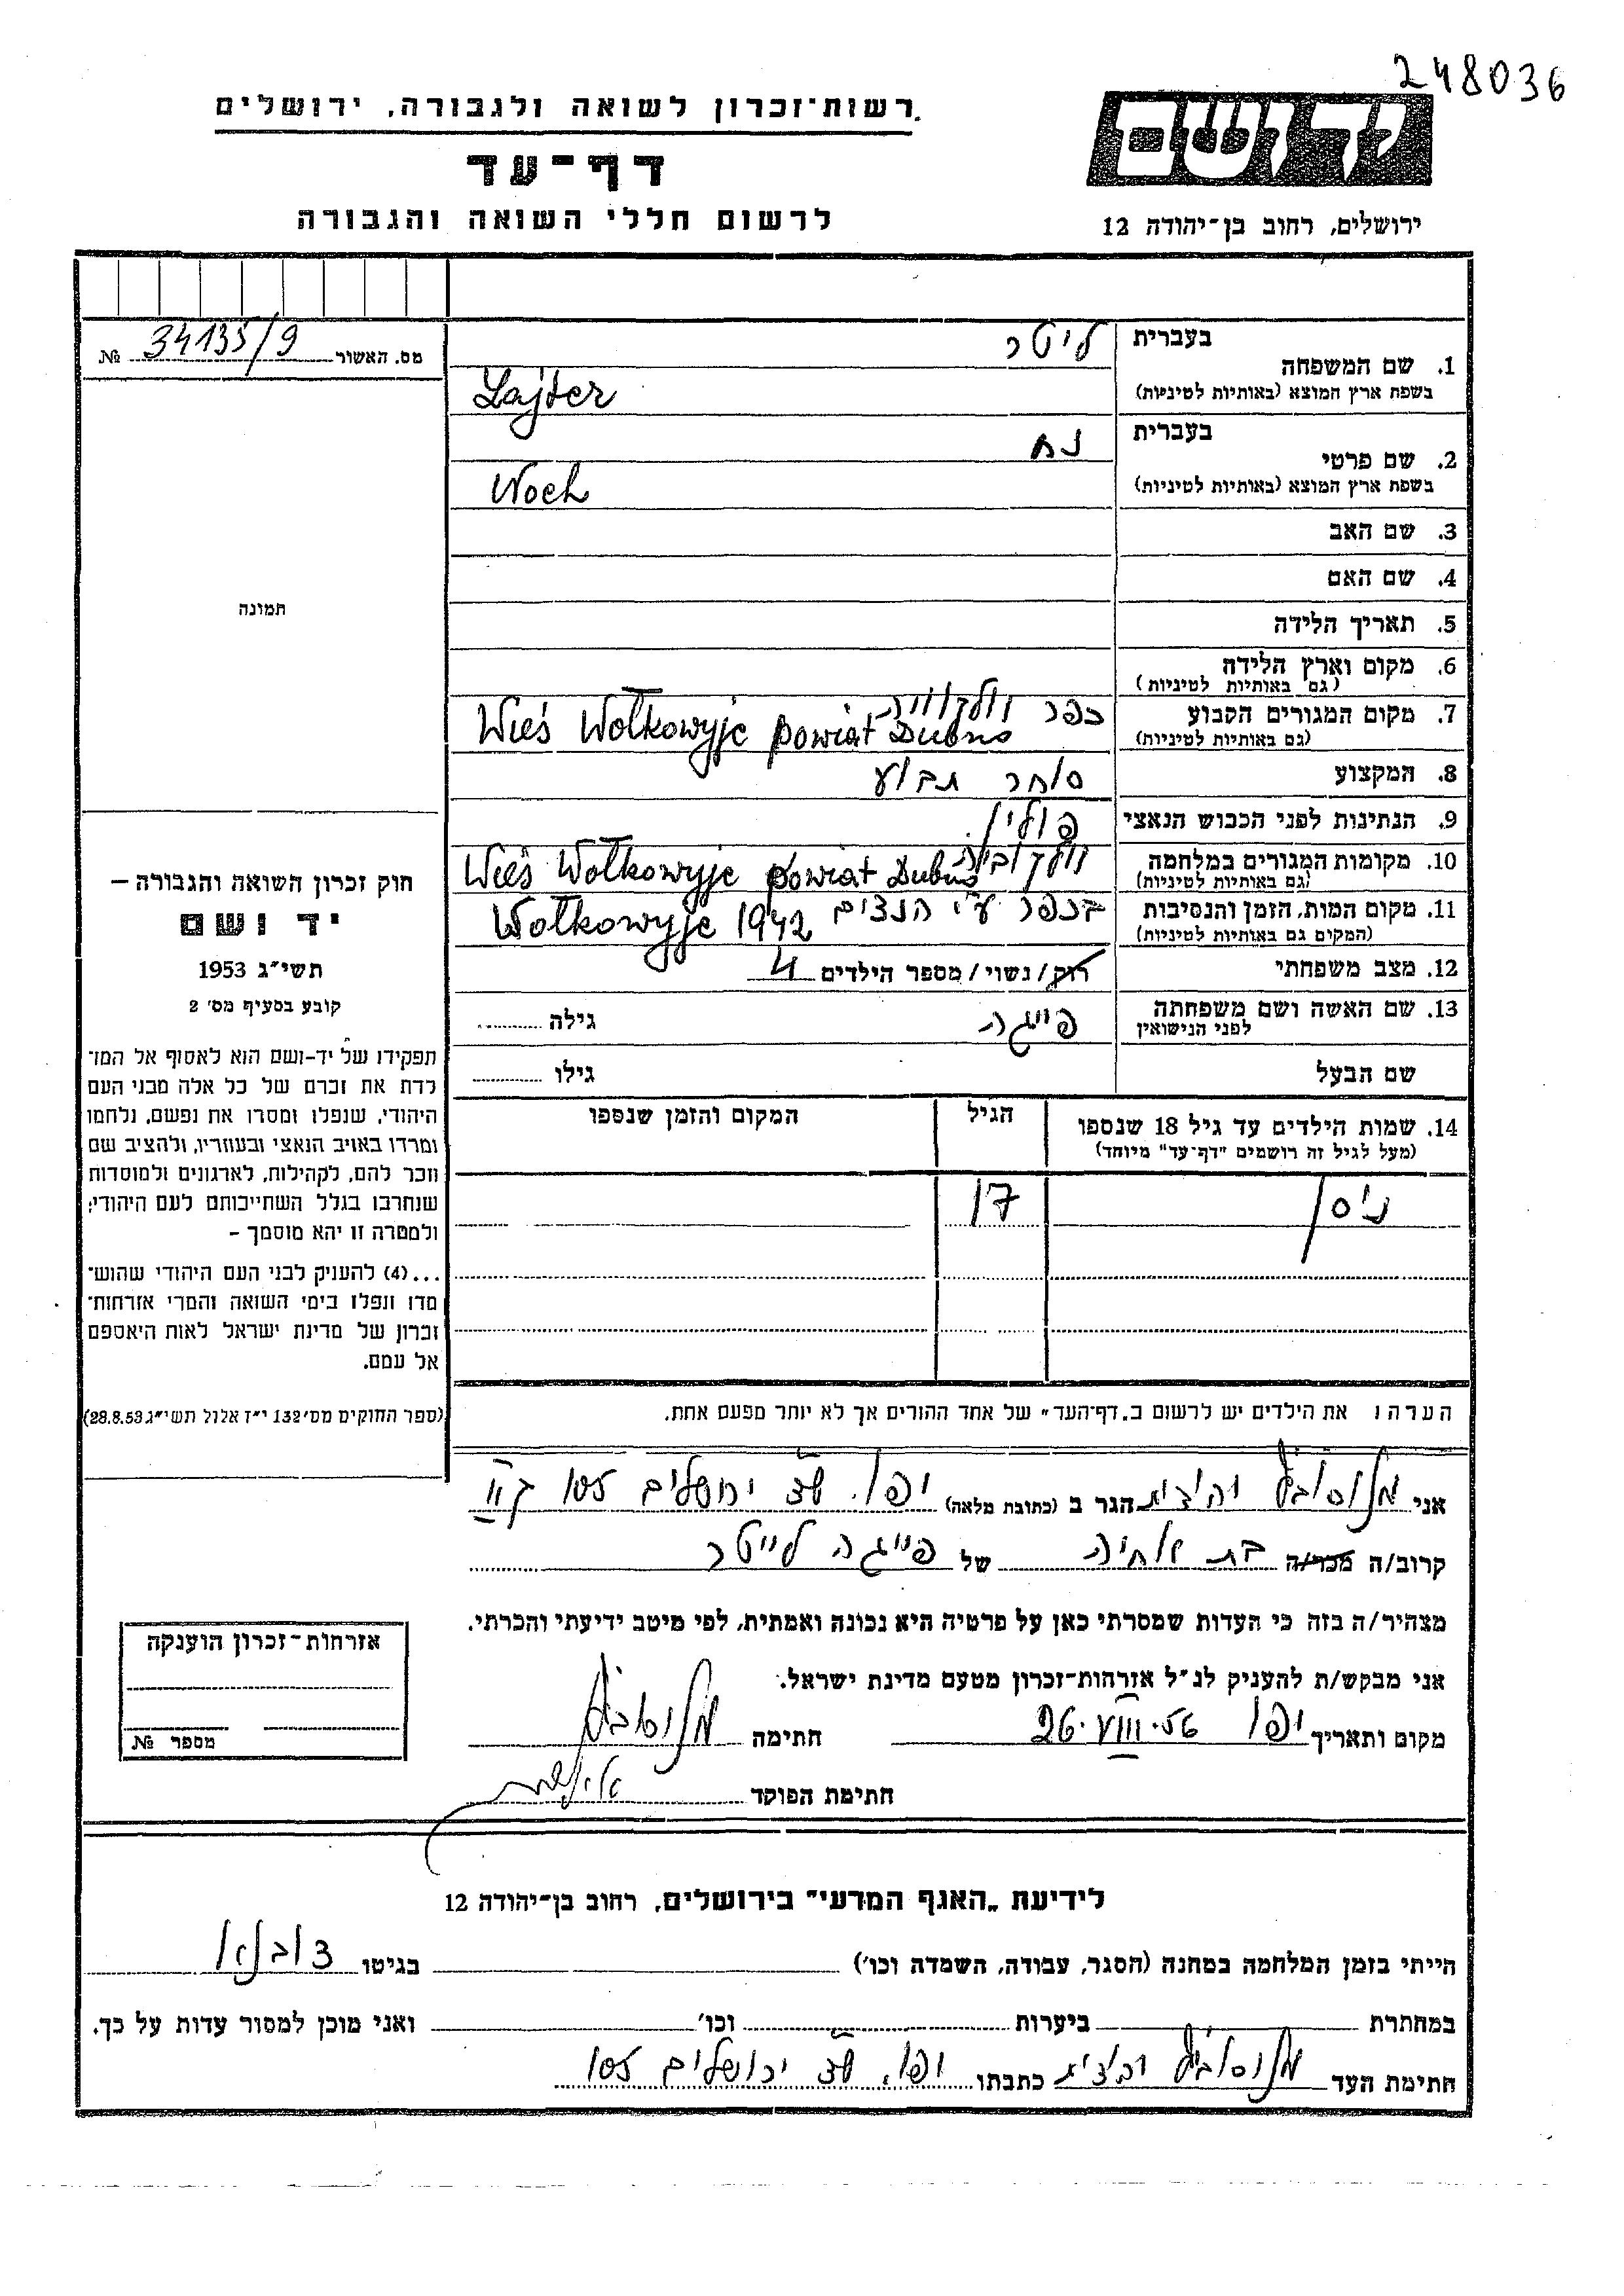 248036
יד ושם
רשות־זכרון לשואה ולגבורה, ירושלים
דף־עד
לרשום חללי השואה והגבורה
ירושלים, רחוב בן־יהודה 12
מס. האשור 34135/9 №
תמונה
חוק זכרון השואה והגבורה –
יד ושם
תשי״ג 1953
קובע בסעיף מס׳ 2
תפקידו של יד-ושם הוא לאסוף אל המו־
לדת את זכרם של כל אלה מבני העם
היהודי, שנפלו ומסרו את נפשם, נלחמו
ומרדו באויב הנאצי ובעוזריו, ולהציב שם
וזכר להם, לקהילות, לארגונים ולמוסדות
שנחרבו בגלל השתייכותם לעם היהודי;
ולמטרה זו יהא מוסמך –
...(4) להעניק לבני העם היהודי שהוש־
מדו ונפלו בימי השואה והמרי אזרחות־
זכרון של מדינת ישראל לאות היאספם
אל עמם.
(ספר החוקים מס׳ 132 י״ז אלול תשי״ג 28.8.53)
בעברית ליטר
1. שם המשפחה
בשפת ארץ המוצא (באותיות לטיניות) Lajter
בעברית נח
2. שם פרטי
בשפת ארץ המוצא (באותיות לטיניות) Noch
3. שם האב
4. שם האם
5. תאריך הלידה
6. מקום וארץ הלידה
(גם באותיות לטיניות)
7. מקום המגורים הקבוע כפר וולקוויה Wieś Wołkowyje powiat Dubno
(גם באותיות לטיניות)
8. המקצוע סוחר תבוע
9. הנתינות לפני הכבוש הנאצי פולין
10. מקומות המגורים במלחמה וולקוביה Wieś Wołkowyje powiat Dubno
(גם באותיות לטיניות)
11. מקום המות, הזמן והנסיבות בכפר ע״י הנצים Wołkowyje 1942
(המקום גם באותיות לטיניות)
12. מצב משפחתי רוק / נשוי / מספר הילדים 4
13. שם האשה ושם משפחתה פייגה גילה
לפני הנישואין
שם הבעל גילו
14. שמות הילדים עד גיל 18 שנספו הגיל המקום והזמן שנספו
(מעל לגיל זה רושמים "דף־עד" מיוחד)
ניסן 17
הערה: את הילדים יש לרשום ב„דף־העד״ של אחד ההורים אך לא יותר מפעם אחת.
אני הגר ב (כתובת מלאה) יפו. שד ירושלים 105
קרוב/ה מכר/ה בת אחיה של פייגה לייטר
מצהיר/ה בזה כי העדות שמסרתי כאן על פרטיה היא נכונה ואמתית, לפי מיטב ידיעתי והכרתי.
אני מבקש/ת להעניק לנ״ל אזרחות־זכרון מטעם מדינת ישראל.
מקום ותאריך יפו 26.VIII.56 חתימה
חתימת הפוקד
אזרחות־זכרון הוענקה
מספר №
לידיעת „האגף המדעי״ בירושלים, רחוב בן־יהודה 12
הייתי בזמן המלחמה במחנה (הסגר, עבודה, השמדה וכו׳) בגיטו דובנא
במחתרת ביערות וכו׳ ואני מוכן למסור עדות על כך.
חתימת העד כתבתו יפו. שד ירושלים 105